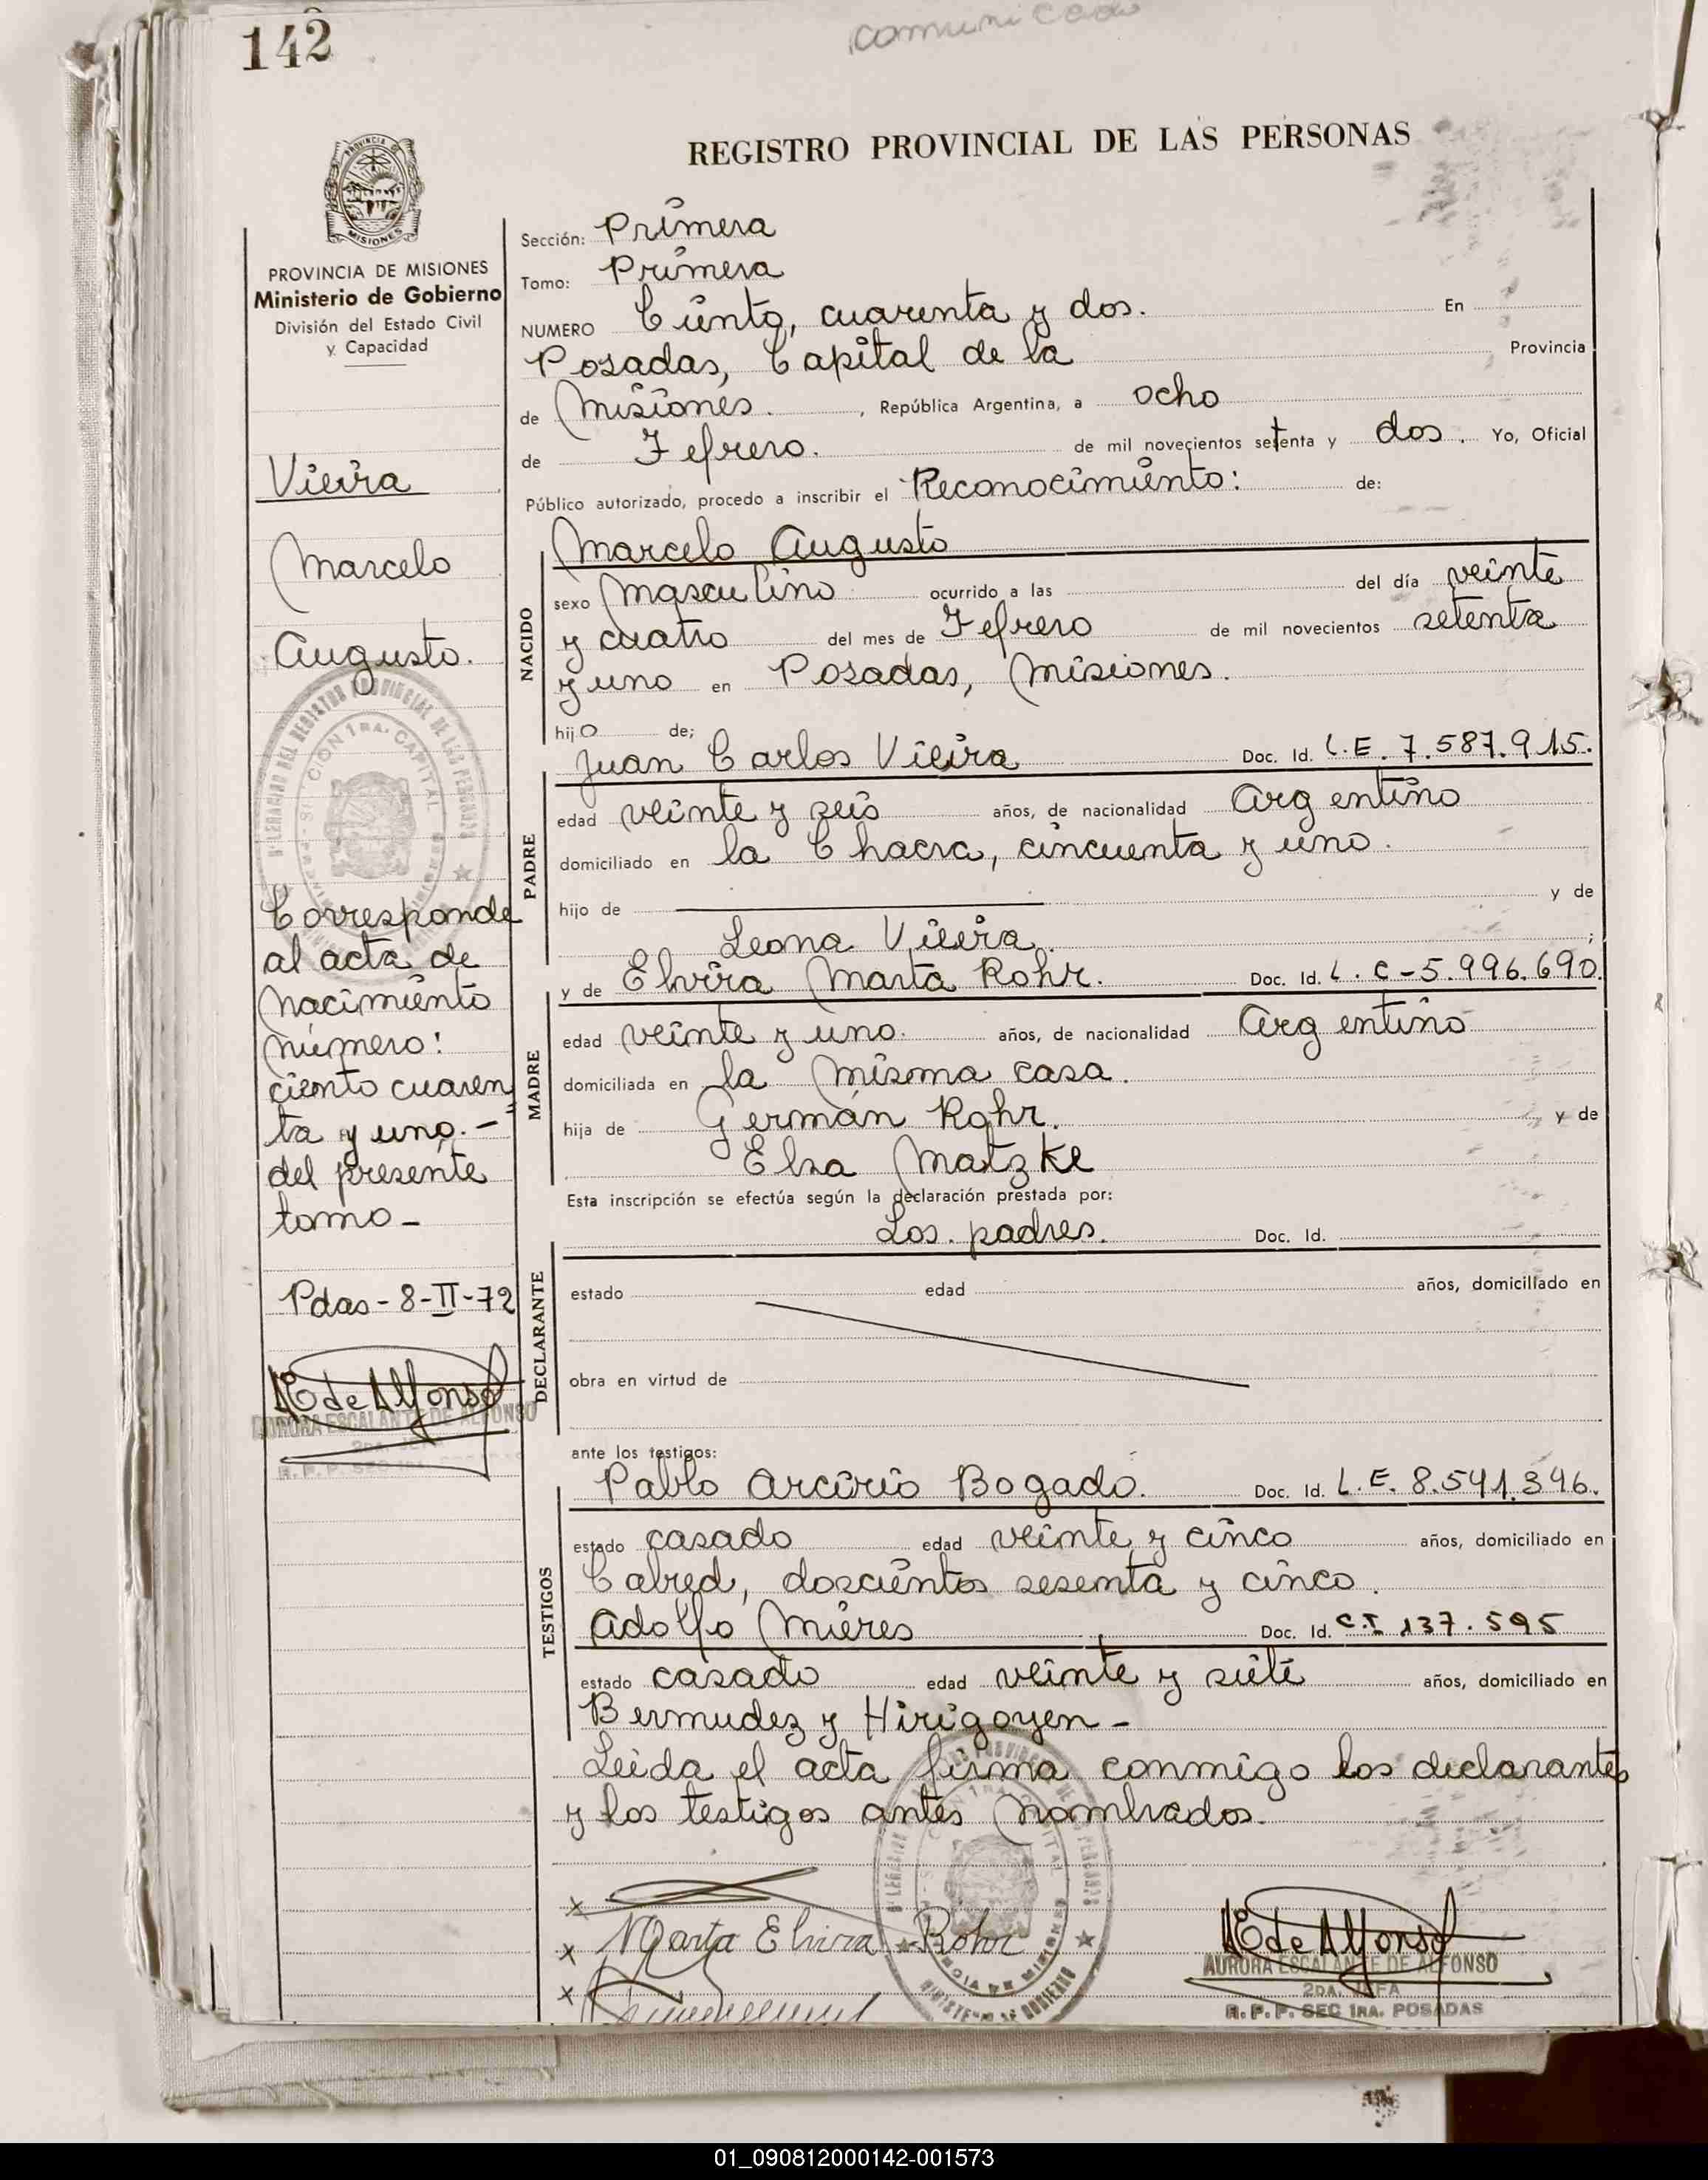 142
comunicado
REGISTRO PROVINCIAL DE LAS PERSONAS
PROVINCIA DE MISIONES
Ministerio de Gobierno
División del Estado Civil
y Capacidad
Vieira
Marcelo
Augusto.
Corresponde
al acta de
nacimiento
número:
ciento cuaren
ta y uno.-
del presente
tomo-
Pdas-8-II-72
AE de Alfonso
AURORA ESCALANTE DE ALFONSO
2DA. JEFA
R.P.P. SEC 1RA.
Sección: Primera
Tomo: Primera
NUMERO Ciento, cuarenta y dos. En
Posadas, Capital de la Provincia
de Misiones. , República Argentina, a ocho
de Febrero. de mil novecientos setenta y dos. Yo, Oficial
Público autorizado, procedo a inscribir el Reconocimiento: de:
Marcelo Augusto
NACIDO
sexo Masculino ocurrido a las del día veinte
y cuatro del mes de Febrero de mil novecientos setenta
y uno en Posadas, Misiones.
hijo de;
Juan Carlos Vieira Doc. Id. L.E. 7.587.915.
PADRE
edad veinte y seis años, de nacionalidad Argentino
domiciliado en la Chacra, cincuenta y uno.
hijo de y de
Leona Vieira. ;
y de Elvira Marta Rohr. Doc. Id. L.C-5.996.690.
MADRE
edad veinte y uno. años, de nacionalidad Argentino
domiciliada en la misma casa.
hija de Germán Rohr. y de
Elsa Matzke
Esta inscripción se efectúa según la declaración prestada por:
Los padres. Doc. Id.
DECLARANTE
estado edad años, domiciliado en
obra en virtud de
ante los testigos:
Pablo Arcirio Bogado. Doc. Id. L.E. 8.541.396.
TESTIGOS
estado casado edad veinte y cinco años, domiciliado en
Cabred, doscientos sesenta y cinco.
Adolfo Mieres Doc. Id. C.I 137.595
estado casado edad veinte y siete años, domiciliado en
Bermudez y Hirigoyen-
Leida el acta firma conmigo los declarantes
y los testigos antes nombrados.
x
x Marta Elvira Rohr
x
AE de Alfonso
AURORA ESCALANTE DE ALFONSO
2DA. JEFA
R.P.P. SEC 1RA. POSADAS
01_090812000142-001573